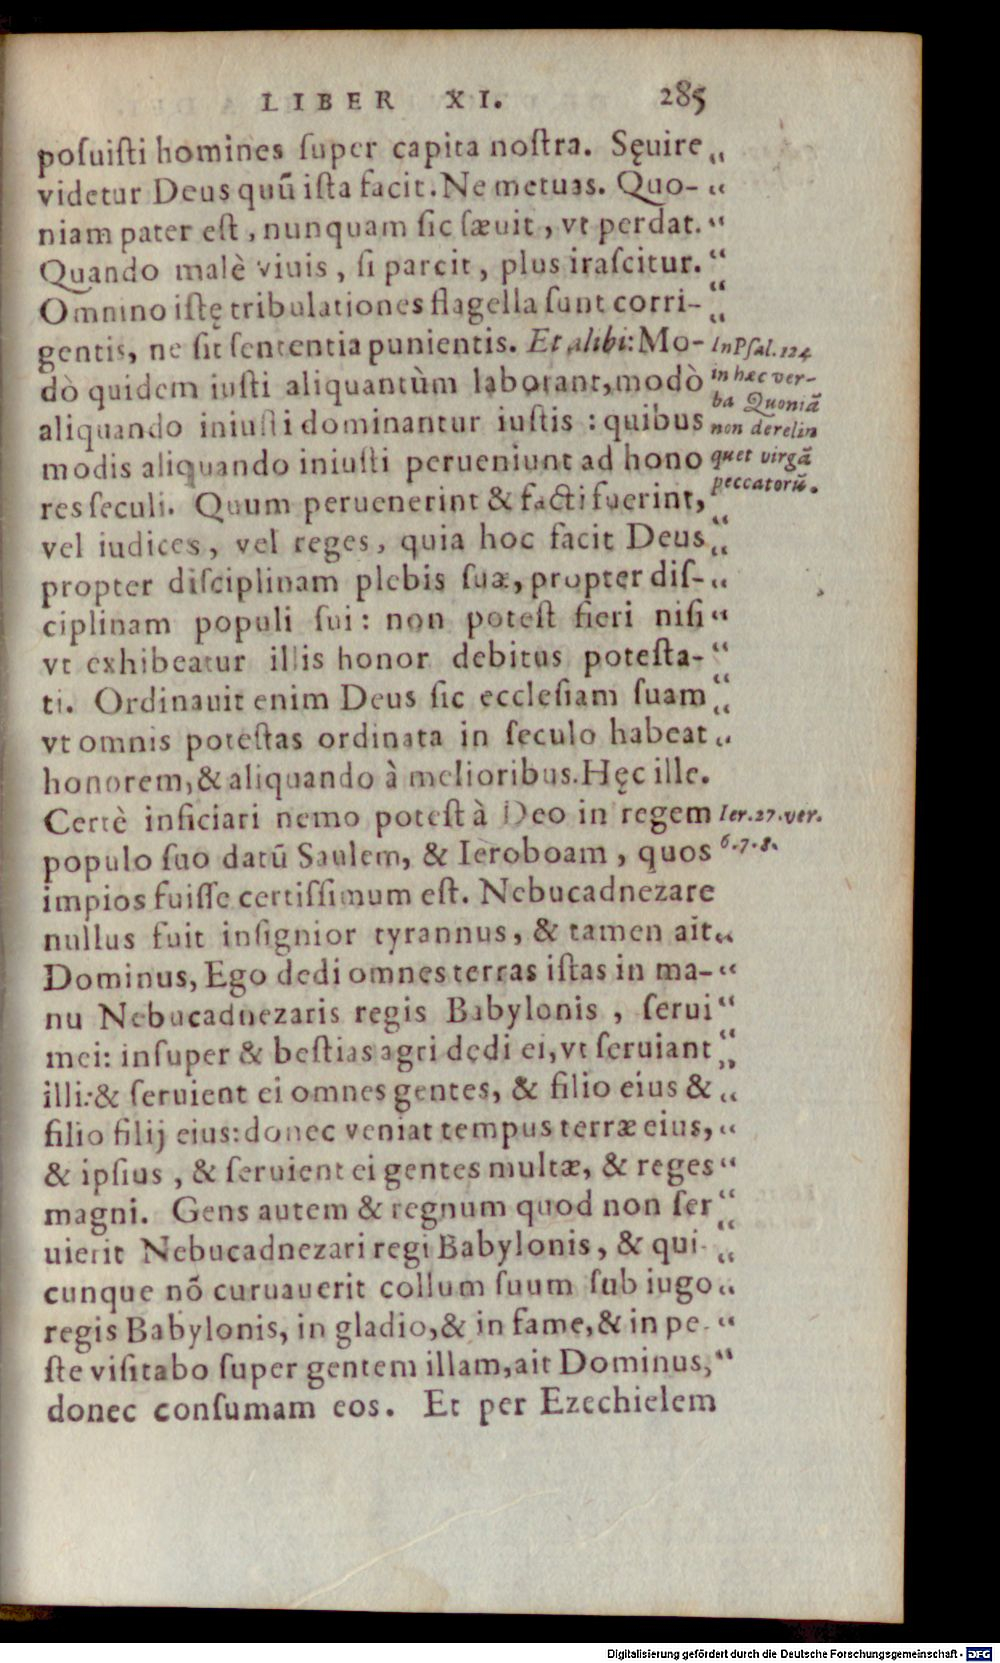 LIBER XI. 285
poſuiſti homines ſuper capita noſtra. Sęuire „
videtur Deus quũ iſta facit. Ne metuas. Quo- “
niam pater eſt, nunquam ſic ſæuit, vt perdat. “
Quando malè viuis, ſi parcit, plus iraſcitur. “
Omnino iſtę tribulationes flagella ſunt corri- “
gentis, ne ſit ſententia punientis. Et alibi: Mo-
dò quidem iuſti aliquantùm laborant, modò
aliquando iniuſti dominantur iuſtis : quibus
modis aliquando iniuſti perueniunt ad hono
res ſeculi. Quum peruenerint & facti fuerint,
vel iudices, vel reges, quia hoc facit Deus “
propter diſciplinam plebis ſuæ, propter diſ- “
ciplinam populi ſui : non poteſt fieri niſi “
vt exhibeatur illis honor debitus poteſta- “
ti. Ordinauit enim Deus ſic eccleſiam ſuam “
vt omnis poteſtas ordinata in ſeculo habeat “
honorem, & aliquando à melioribus. Hęc ille.
Certè inficiari nemo poteſt à Deo in regem
populo ſuo datũ Saulem, & Ieroboam, quos
impios fuiſſe certiſſimum eſt. Nebucadnezare
nullus fuit inſignior tyrannus, & tamen ait “
Dominus, Ego dedi omnes terras iſtas in ma- “
nu Nebucadnezaris regis Babylonis, ſerui “
mei: inſuper & beſtias agri dedi ei, vt ſeruiant “
illi: & ſeruient ei omnes gentes, & filio eius & “
filio filij eius: donec veniat tempus terræ eius, “
& ipſius, & ſeruient ei gentes multæ, & reges “
magni. Gens autem & regnum quod non ſer “
uierit Nebucadnezari regi Babylonis, & qui- “
cunque nõ curuauerit collum ſuum ſub iugo “
regis Babylonis, in gladio, & in fame, & in pe- “
ſte viſitabo ſuper gentem illam, ait Dominus, “
donec conſumam eos. Et per Ezechielem
In Pſal. 124
in hæc ver-
ba Quoniã
non derelin
quet virgã
peccatorũ.
Ier. 27. ver.
6. 7. 8.
Digitalisierung gefördert durch die Deutsche Forschungsgemeinschaft - DFG